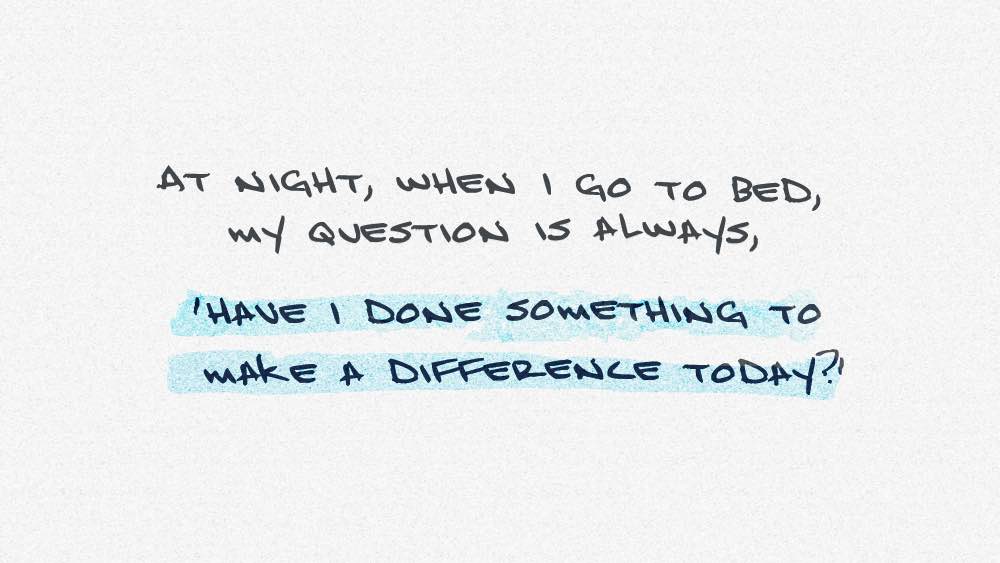 AT NIGHT, WHEN I GO TO BED,
MY QUESTION IS ALWAYS,
'HAVE I DONE SOMETHING TO
MAKE A DIFFERENCE TODAY?'